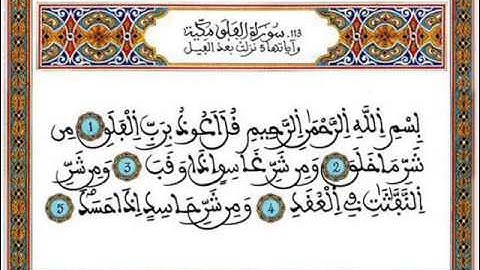 113 سورة الفلق مكية
وآياتها 5 نزلت بعد الفيل
بِسْمِ اِللَّهِ اِلرَّحْمَٰنِ اِلرَّحِيمِ قُلَ اَعُوذُ بِرَبِّ اِلْفَلَقِ 1 مِن
شَرِّ مَا خَلَقَ 2 وَمِن شَرِّ غَاسِقٍ اِذَا وَقَبَ 3 وَمِن شَرِّ
اِلنَّفَّٰثَٰتِ فِے اِلْعُقَدِ 4 وَمِن شَرِّ حَاسِدٍ اِذَا حَسَدَ 5